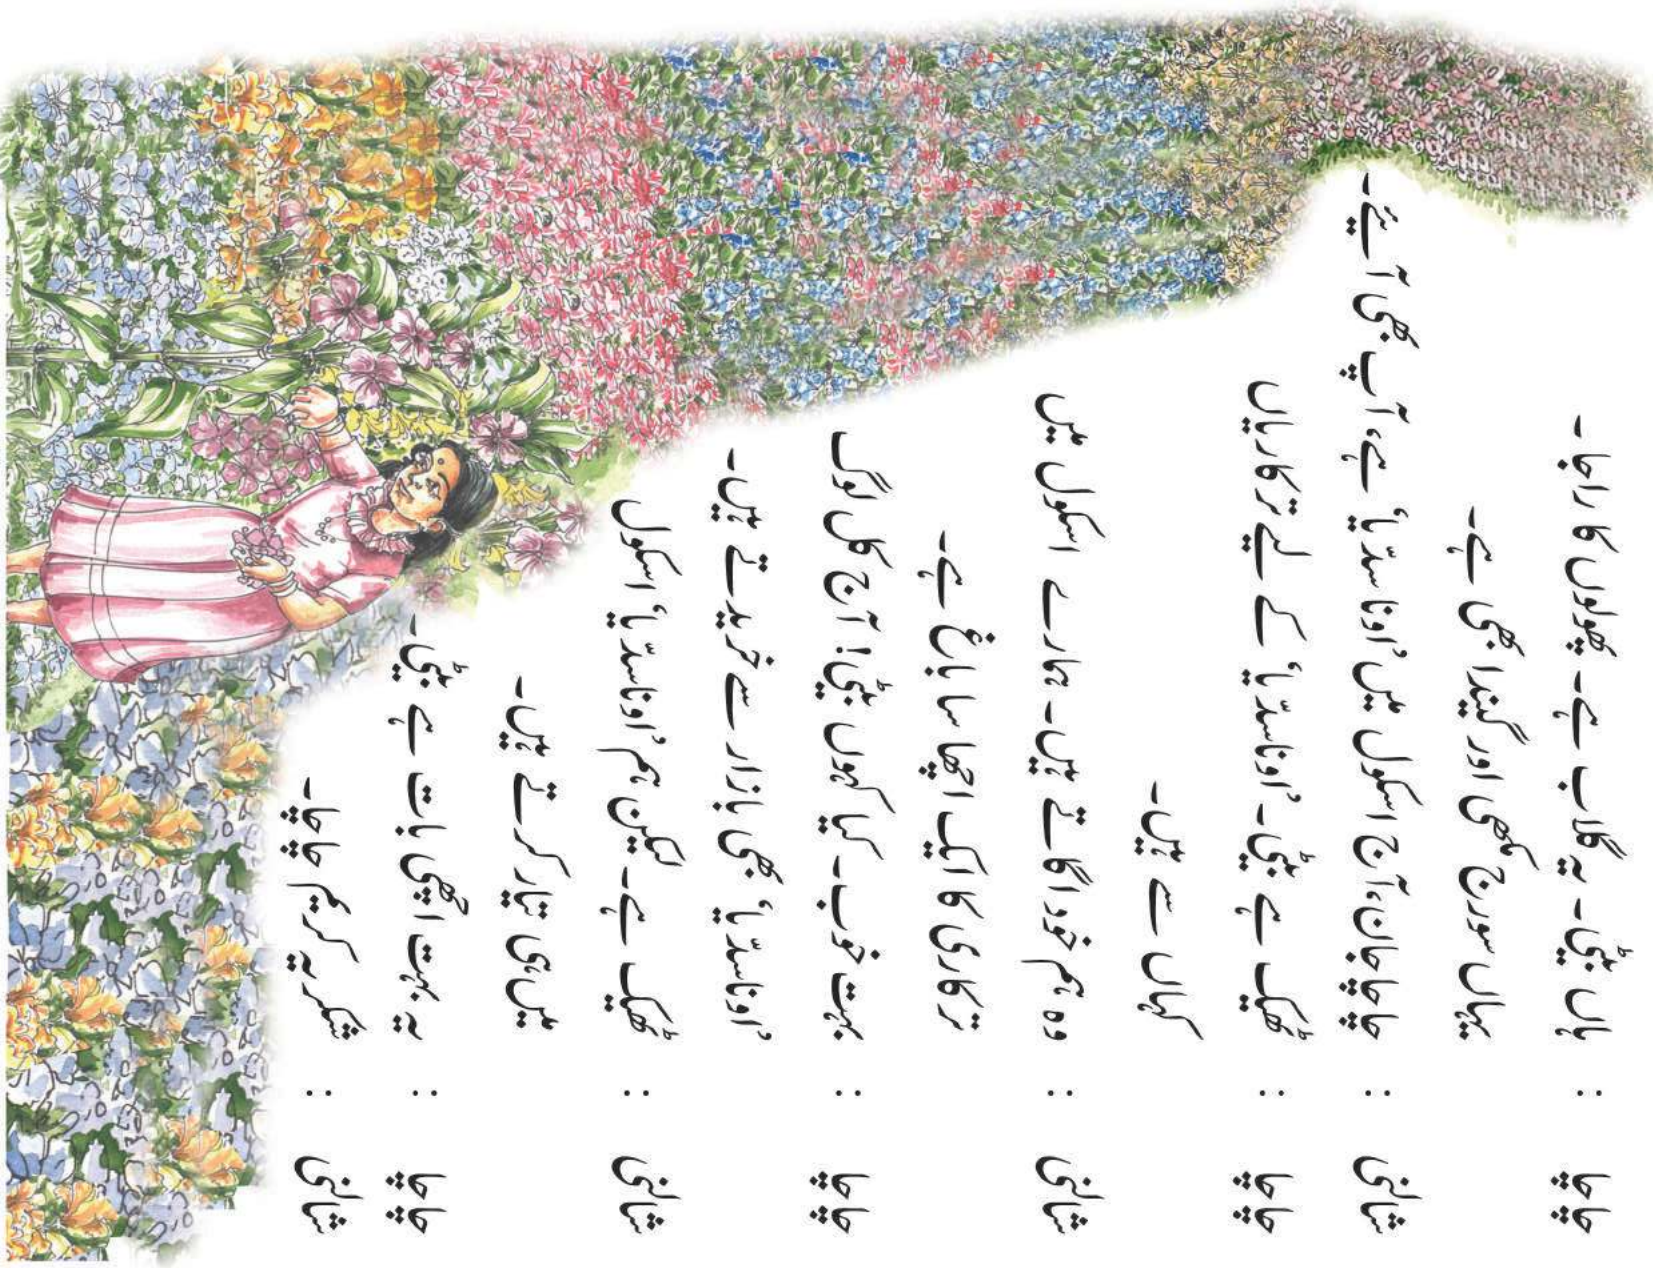 چاچا : ہاں بیٹی۔ یہ گلاب ہے۔ پھولوں کا راجا۔
یہاں سورج مکھی اور گیندا بھی ہے۔
شالنی : چاچا جان، آج اسکول میں 'اوناسدّیا' ہے، آپ بھی آیئے۔
چاچا : ٹھیک ہے بیٹی۔ 'اوناسدّیا' کے لیے ترکاریاں
کہاں سے ہیں۔
شالنی : وہ ہم خود اگاتے ہیں۔ ہمارے اسکول میں
ترکاری کا ایک اچھا سا باغ ہے۔
چاچا : بہت خوب۔ کیا کہوں بیٹی! آج کل لوگ
'اوناسدّیا' بھی بازار سے خریدتے ہیں۔
شالنی : ٹھیک ہے۔ لیکن ہم 'اوناسدّیا' اسکول
میں ہی تیار کرتے ہیں۔
چاچا : یہ بہت اچھی بات ہے بیٹی۔
شالنی : شکریہ کریم چاچا۔